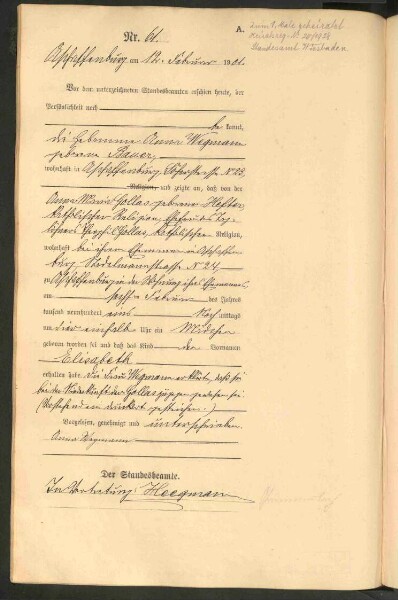 A.
zum 1. Male geheiratet
Standesamt Wiesbaden.
Nr. 61.
Aschaffenburg am 12. Februar 1901.
Vor dem unterzeichneten Standesbeamten erschien heute, der
Persönlichkeit nach
be kannt,
die Hebamme Anna Wegmann
geborene Bauer,
wohnhaft in Aschaffenburg N 23,
Religion, und zeigte an, daß von der
Anna Maria Gollas geborene Hefter
katholischer Religion, Ehefrau des Tag-
löhners Gollas, katholischer Religion,
wohnhaft bei ihrem Ehemanne in Aschaffen-
burg, N 24,
zu Aschaffenburg in der Wohnung ihres Ehemannes,
am sechsten Februar des Jahres
tausend neunhundert eins Nach mittags
um vier einhalb Uhr ein Mädchen
geboren worden sei und daß das Kind den Vornamen
Elisabeth
erhalten habe. Die Frau Wegmann erklärte, daß sie
bei der Niederkunft der Gollas zugegen gewesen sei.
(Vorstehend ein Druckwort gestrichen.)
Vorgelesen, genehmigt und unterschrieben.
Anna Wegmann
Der Standesbeamte.
In Vertretung: Heegmann